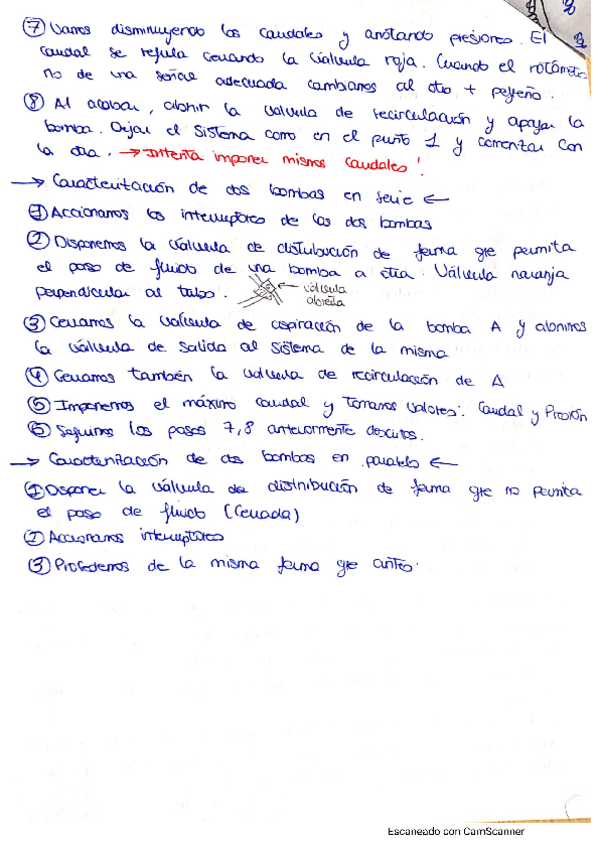 ⑦ Vamos disminuyendo los caudales y anotando presiones. El
caudal se regula cerrando la válvula roja. Cuando el rotámetro
no de una señal adecuada cambiamos al otro + pequeño.
⑧ Al acabar, abrir la válvula de recirculación y apagar la
bomba. Dejar el sistema como en el punto 1 y comenzar con
la otra. → Intenta imponer mismos caudales!
→ Caracterización de dos bombas en serie ←
① Accionamos los interruptores de las dos bombas
② Disponemos la válvula de distribución de forma que permita
el paso de fluido de una bomba a otra. Válvula naranja
perpendicular al tubo. ← válvula
abierta
③ Cerramos la válvula de aspiración de la bomba A y abrimos
la válvula de salida al sistema de la misma
④ Cerramos también la válvula de recirculación de A
⑤ Imponemos el máximo caudal y tomamos valores: Caudal y Presión
⑥ Seguimos los pasos 7,8 anteriormente descritos.
→ Caracterización de dos bombas en paralelo ←
① Disponer la válvula de distribución de forma que no permita
el paso de fluido (Cerrada)
② Accionamos interruptores
③ Procedemos de la misma forma que antes.
Escaneado con CamScanner